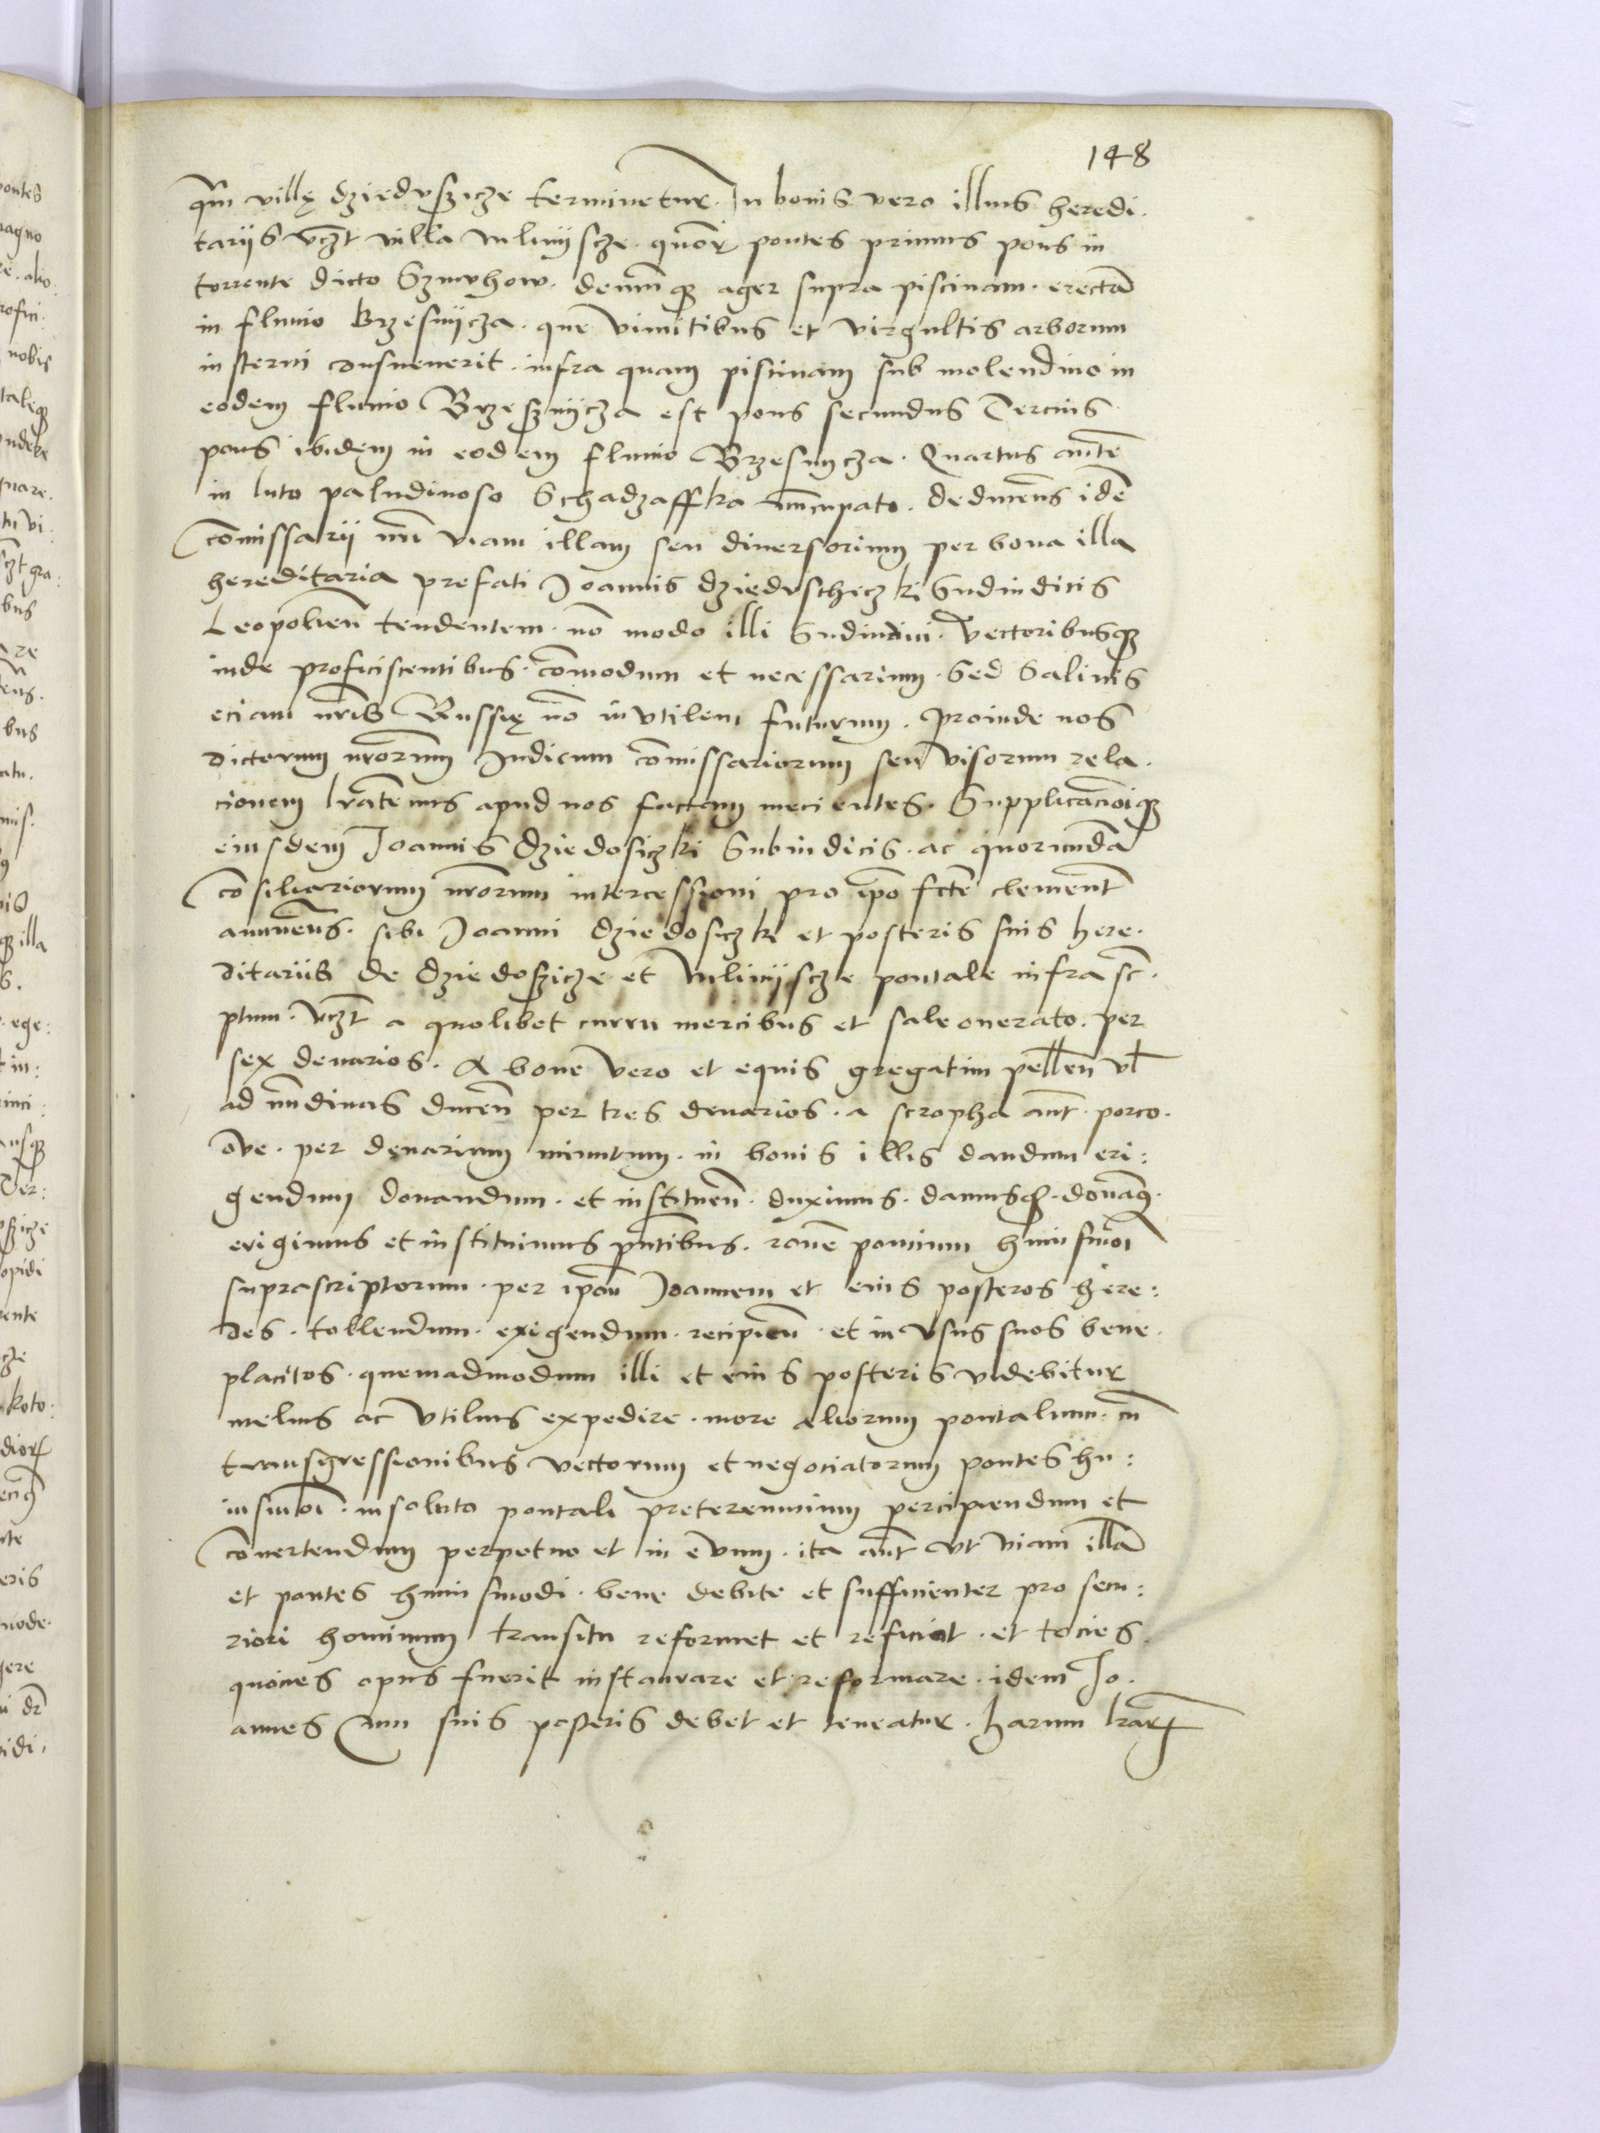 148
villę dzieduszicze terminetur. In bonis vero illius heredi.
tariis vczt villa vulinijscze. quor pontes primus pons in
torrente dicto Szmvhow. ager supra piscinam. erecta
in fluvio Brzesnijcza. que vimitibus et virgultis arborum
insterni consueverit. infra quam piscinam sub molendino in
eodem fluvio Brzesznijcza est pons secundus Tercius
pons ibidem in eodem fluvio Brzesnycza. Quartus aute
in luto paludinoso Schadzaffka nuncupato. ide
comissarii nri viam illam seu diversorium per bona illa
hereditaria prefati Joannis dziedvschiczki Sudiudicis
Leopolien tendentem. no modo illi Sudiudici. Vectoribusq
inde proficiscentibus. comodum et necessarium. Sed Salinis
eciam nris Russię no invtilem futurum. Proinde nos
dictorum nrorum Judicum comissariorum seu visorum rela.
cionem apud nos factam Supplicacioiq
eiusdem Joannis dziedosiczki Subiudicis. ac quorunda
cosiliariorum nrorum intercessioni pro ipo fcte clement
annuens. sibi Joanni dziedosiczki et posteris suis here.
ditariis de dziedoszicze et vulinijscze pontale infrasc.
ptum. vczt a quolibet curru mercibus et sale onerato. per
sex denarios. A bove vero et equis gregatim pellen vl
ad nundinas ducen per tres denarios. a scropha aut. porco.
ove. per denarium minutum. in bonis illis dandum eri:
gendum donandum. et instituen. duximus. damusq. donaq.
erigimus et instituimus pntibus. rone poncium huiusmoi
suprascriptorum. per ipm Joannem et eius posteros here:
des. tollendum. exigendum. recipien. et in vsus suos bene.
placitos. quemadmodum illi et eius posteris videbitur
melius ac vtilius expedire. more aliorum pontalium. cu
transgressionibus vectorum et negociatorum pontes hu:
iusmoi. insoluto pontali pretereuncium percipiendum et
convertendum perpetuo et in evum. ita aut vt viam illa
et pontes huiusmodi. bene debite et sufficienter pro secu:
riori hominum transitu reformet et reficiat. et tocies
quocies opus fuerit instaurare et reformare. idem Jo.
annes cum suis posteris debet et teneatur. harum lrar